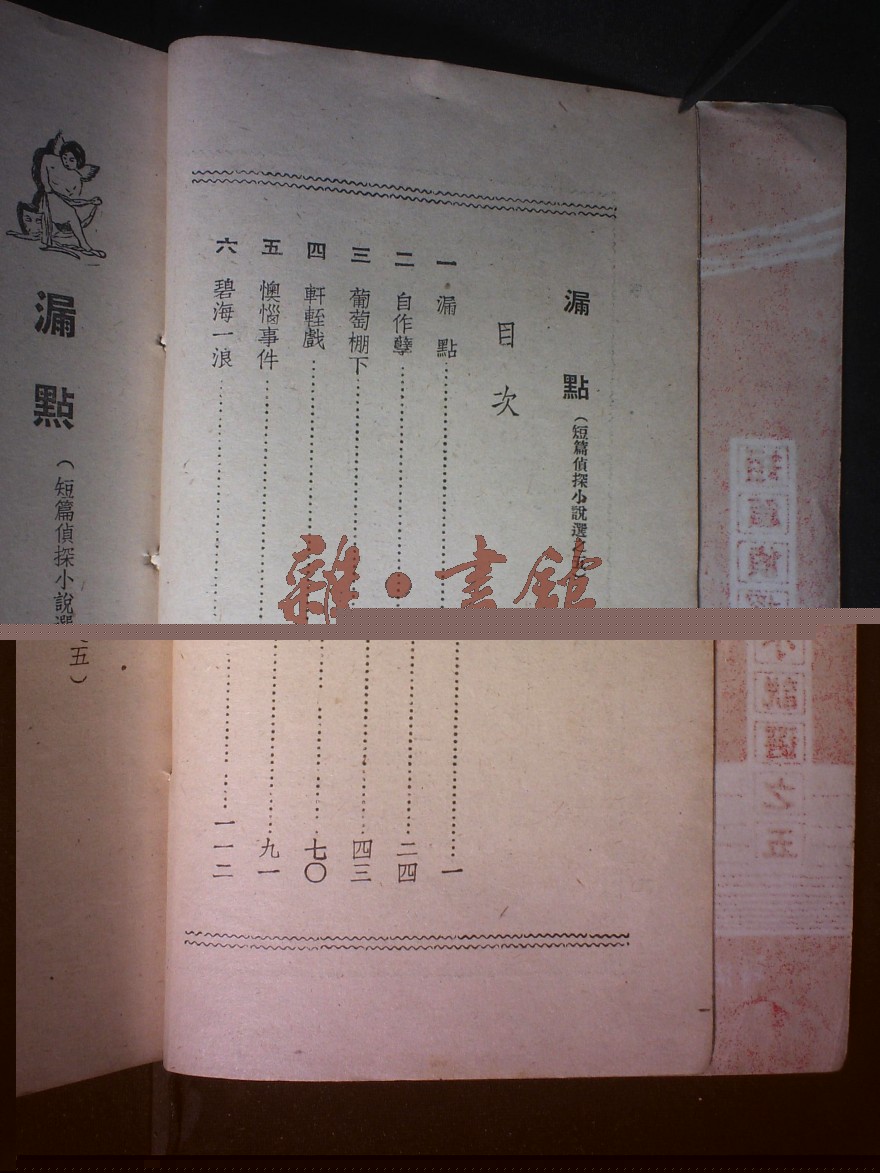 漏點（短篇偵探小說選之五）
目次
一 漏點……一
二 自作孽……二四
三 葡萄棚下……四三
四 軒輊戲……七〇
五 懊惱事件……九一
六 碧海一浪……一一二
漏點（短篇偵探小說選之五）
雜·書館
小說選之五